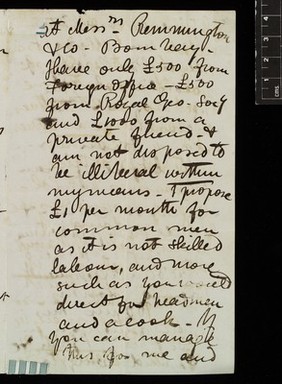 at Mess^rs Remmington
& Co - Bombay -
I have only £500 from
Foreign Office - £500
from Royal Geo. Socy
and £1000 from a
private friend - &
am not disposed to
be illiberal within
my means - I propose
£1 per month for
common men
as it is not skilled
labour, and more
such as you would
direct for headmen
and a cook - If
you can manage
this for me and